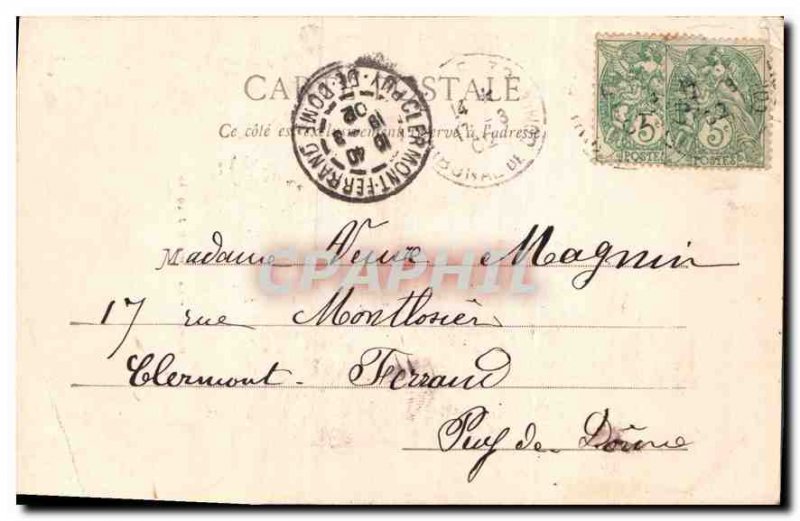 CARTE POSTALE
Ce côté est exclusivement réservé à l'adresse
CLERMONT-FERRAND
PUY-DE-DOME
5c 5c
POSTES POSTES
CPAPHIL
Madame Veuve Magnin
17 rue Montlosier
Clermont-Ferrand
Puy de Dôme